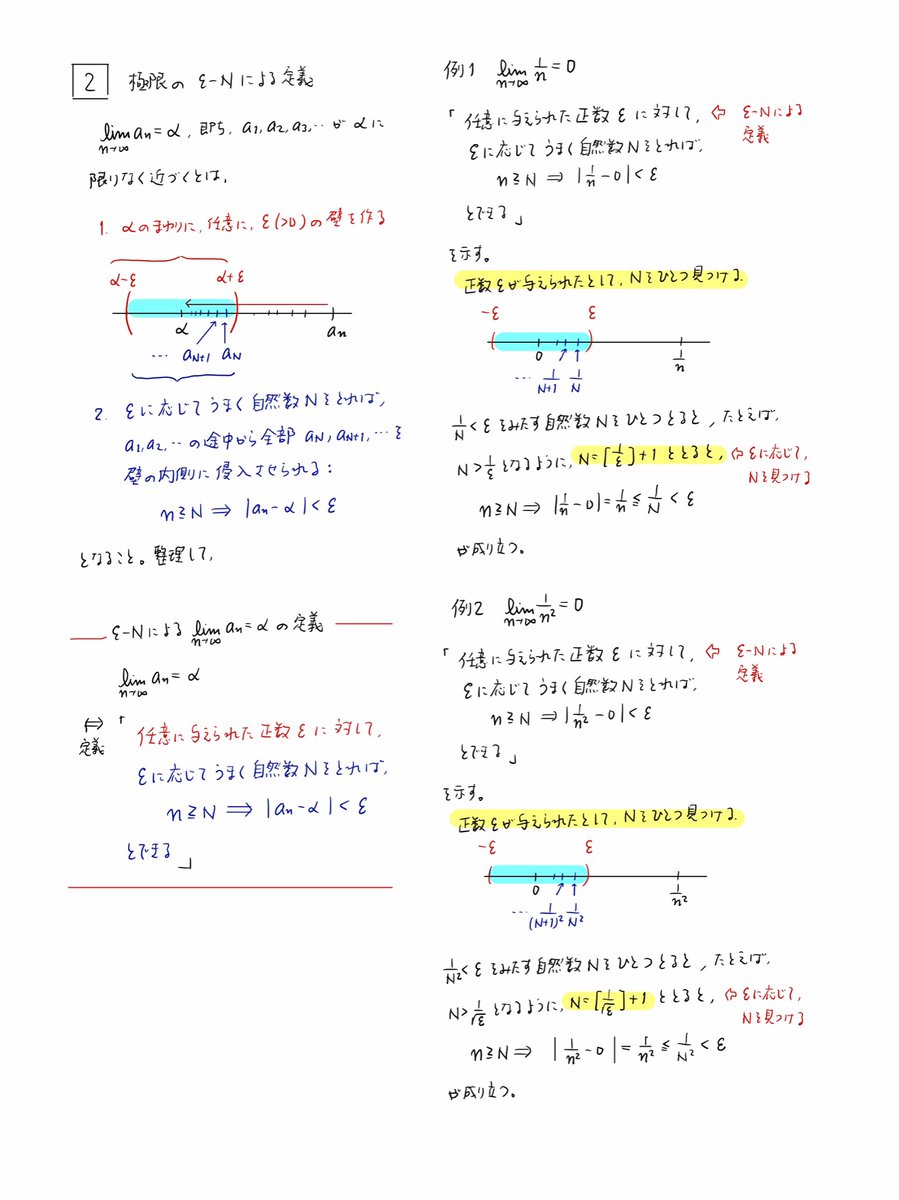 2 極限の ε-N による定義
lim_{n→∞} an = α, 即ち, a1, a2, a3, … が α に
限りなく近づくとは,
1. αのまわりに, 任意に, ε(>0)の壁を作る
α-ε α+ε
α an
… aN+1 aN
2. εに応じてうまく自然数Nをとれば,
a1, a2, … の途中から全部 aN, aN+1, … を
壁の内側に侵入させられる:
n≧N ⇒ |an-α|<ε
となること。整理して,
ε-Nによる lim_{n→∞} an = α の定義
lim_{n→∞} an = α
⇔ 「任意に与えられた正数 ε に対して,
定義 εに応じてうまく自然数Nをとれば,
n≧N ⇒ |an-α|<ε
とできる 」
例1 lim_{n→∞} 1/n = 0
「任意に与えられた正数 ε に対して, ⇦ ε-Nによる
定義
εに応じてうまく自然数Nをとれば,
n≧N ⇒ |1/n - 0|<ε
とできる 」
を示す。
正数εが与えられたとして, Nをひとつ見つける.
-ε ε
0 1/n
… 1/(N+1) 1/N
1/N < ε をみたす自然数Nをひとつとると, たとえば,
N > 1/ε となるように, N=[1/ε]+1 ととると, ⇦ εに応じて,
Nを見つける
n≧N ⇒ |1/n - 0| = 1/n ≦ 1/N < ε
が成り立つ。
例2 lim_{n→∞} 1/n² = 0
「任意に与えられた正数 ε に対して, ⇦ ε-Nによる
定義
εに応じてうまく自然数Nをとれば,
n≧N ⇒ |1/n² - 0|<ε
とできる 」
を示す。
正数εが与えられたとして, Nをひとつ見つける.
-ε ε
0 1/n²
… 1/(N+1)² 1/N²
1/N² < ε をみたす自然数Nをひとつとると, たとえば,
N > 1/√ε となるように, N=[1/√ε]+1 ととると, ⇦ εに応じて,
Nを見つける
n≧N ⇒ |1/n² - 0| = 1/n² ≦ 1/N² < ε
が成り立つ。